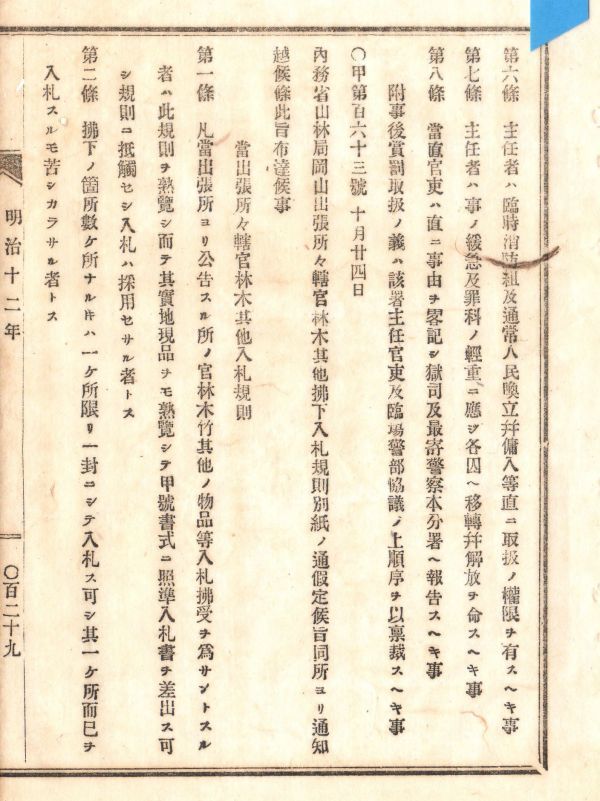 第六條　主任者ハ臨時消防組及通常人民喚立幷傭入等直ニ取扱ノ權限ヲ有スヘキ事
第七條　主任者ハ事ノ緩急及罪科ノ輕重ニ應シ各囚ヘ移轉幷解放ヲ命スヘキ事
第八條　當直官吏ハ直ニ事由ヲ畧記シ獄司及最寄警察本分署ヘ報告スヘキ事
附事後賞罰取扱ノ義ハ該署主任官吏及臨塲警部協議ノ上順序ヲ以稟裁スヘキ事
〇甲第百六十三號 十月廿四日
內務省山林局岡山出張所々轄官林木其他拂下入札規則別紙ノ通假定候旨同所ヨリ通知
越候條此旨布達候事
當出張所々轄官林木其他入札規則
第一條　凡當出張所ヨリ公告スル所ノ官林木竹其他ノ物品等入札拂受ヲ爲サントスル
者ハ此規則ヲ熟覽シ而テ其實地現品ヲモ熟覽シテ甲號書式ニ照準入札書ヲ差出ス可
シ規則ニ抵觸セシ入札ハ採用セサル者トス
第二條　拂下ノ箇所數ケ所ナルトキハ一ケ所限リ一封ニシテ入札ス可シ其一ケ所而已ヲ
入札スルモ苦シカラサル者トス
明治十二年
〇百二十九